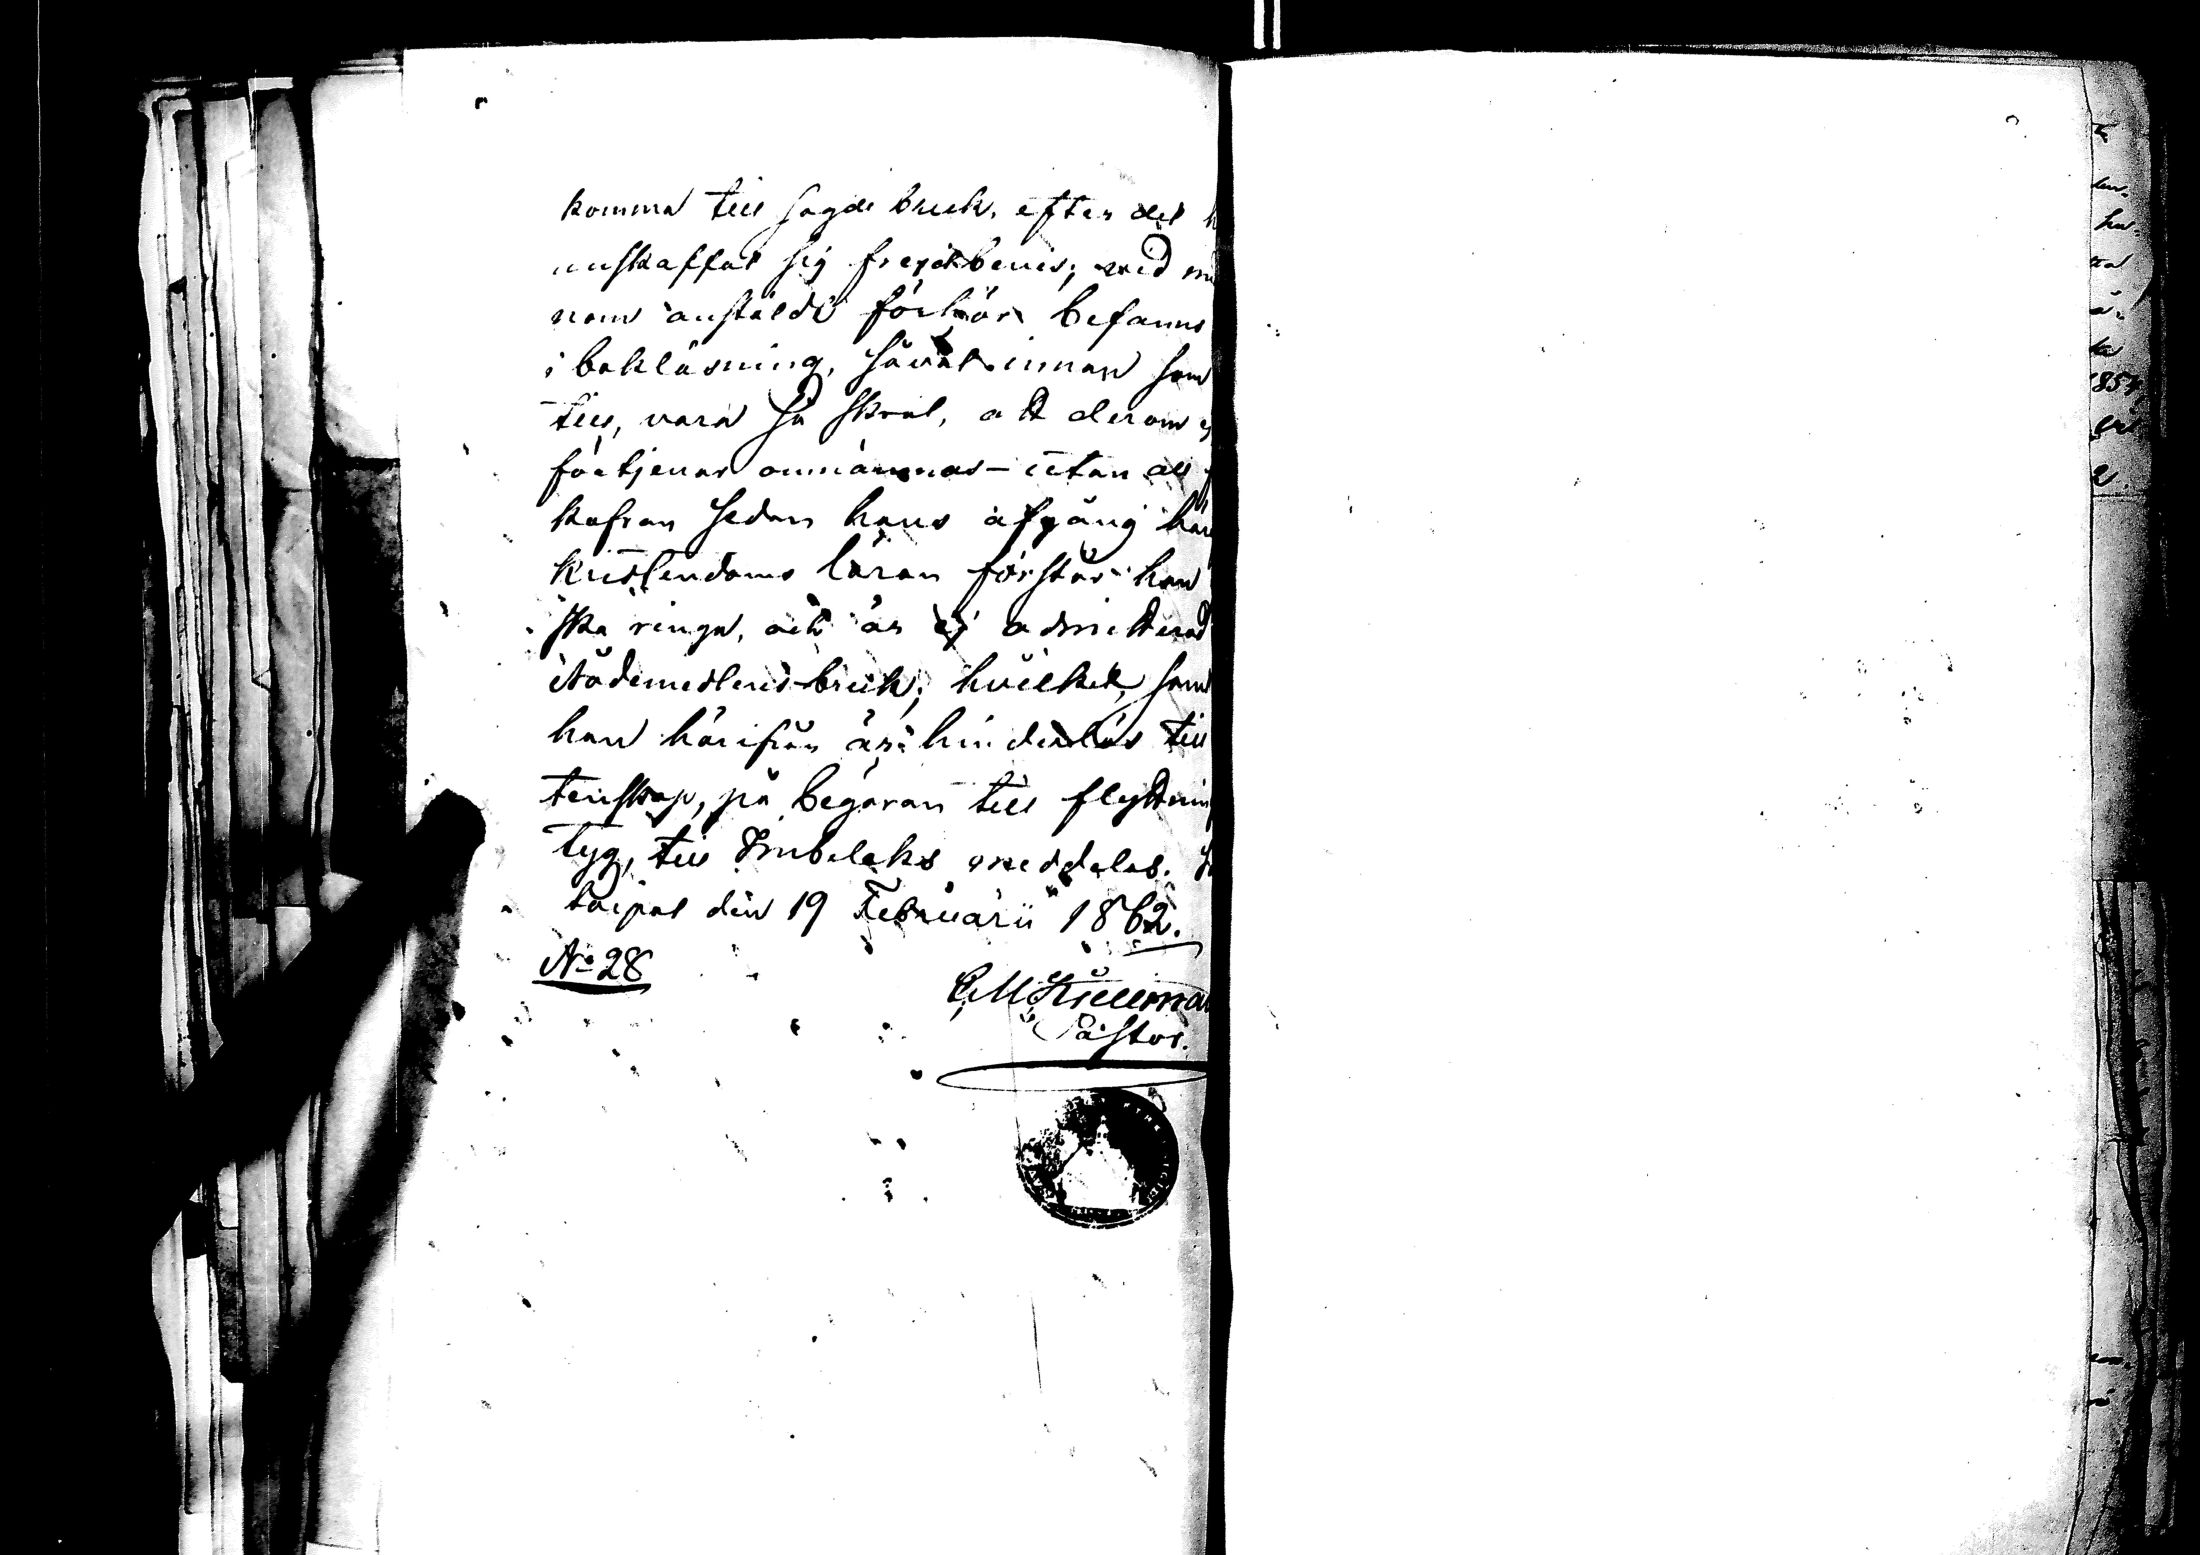 komma till sagde bruk, efter det h
anskaffat sig frejdebevis; wid m
nom anstäldt förhör befanns
i bokläsning, såväl innan som
till, vara så skral, att derom ej
förtjenar omnämnas – utan all
kofran sedan hans afgång här
kristendoms läran förstår han
ska ringa, och är ej admitterad
Nådemedlens bruk; hvilket, samt
han härifrån är hinderlös till
tenskap, på begäran till flyttnin
tyg, till Imbilaks meddelas. S
taipal den 19 Februarii 1862.
No 28
Pastor.
tta
1854